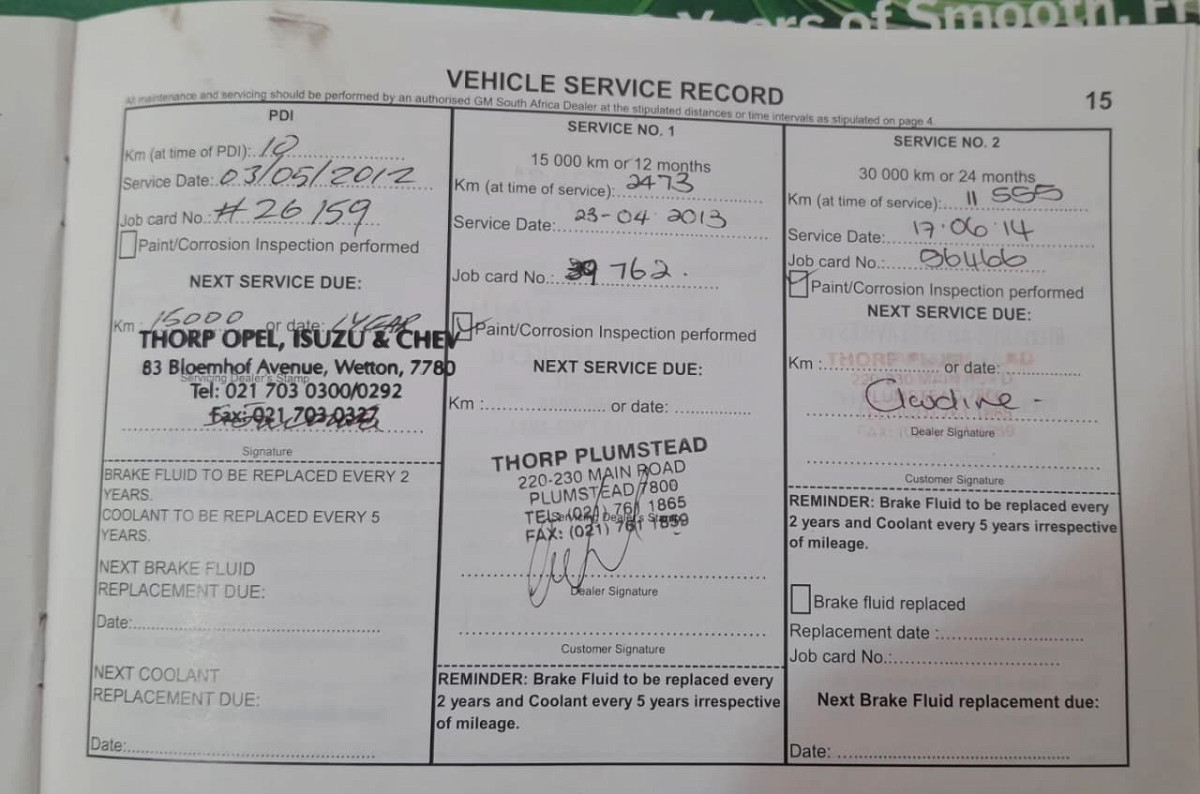 Years of Smooth, Fr
VEHICLE SERVICE RECORD
15
All maintenance and servicing should be performed by an authorised GM South Africa Dealer at the stipulated distances or time intervals as stipulated on page 4.
PDI
Km (at time of PDI):. 10
Service Date: 03/05/2012
Job card No.: #26159
Paint/Corrosion Inspection performed
NEXT SERVICE DUE:
Km : 15000 or date: 1 YEAR
THORP OPEL, ISUZU & CHEV
83 Bloemhof Avenue, Wetton, 7780
Servicing Dealer's Stamp
Tel: 021 703 0300/0292
Fax: 021 703 0327
Signature
BRAKE FLUID TO BE REPLACED EVERY 2
YEARS.
COOLANT TO BE REPLACED EVERY 5
YEARS.
NEXT BRAKE FLUID
REPLACEMENT DUE:
Date:
NEXT COOLANT
REPLACEMENT DUE:
Date:
SERVICE NO. 1
15 000 km or 12 months
Km (at time of service): 2473
Service Date: 23-04 2013
Job card No.: 39 762.
Paint/Corrosion Inspection performed
NEXT SERVICE DUE:
Km : or date:
THORP PLUMSTEAD
220-230 MAIN ROAD
PLUMSTEAD 7800
TEL: (021) 761 1865
Servicing Dealer's Stamp
FAX: (021) 761 1859
Dealer Signature
Customer Signature
REMINDER: Brake Fluid to be replaced every
2 years and Coolant every 5 years irrespective
of mileage.
SERVICE NO. 2
30 000 km or 24 months
Km (at time of service): 11 555
Service Date: 17.06.14
Job card No.: 86466
Paint/Corrosion Inspection performed
NEXT SERVICE DUE:
Km : or date:
Claudine -
Dealer Signature
Customer Signature
REMINDER: Brake Fluid to be replaced every
2 years and Coolant every 5 years irrespective
of mileage.
Brake fluid replaced
Replacement date :
Job card No.:
Next Brake Fluid replacement due:
Date: